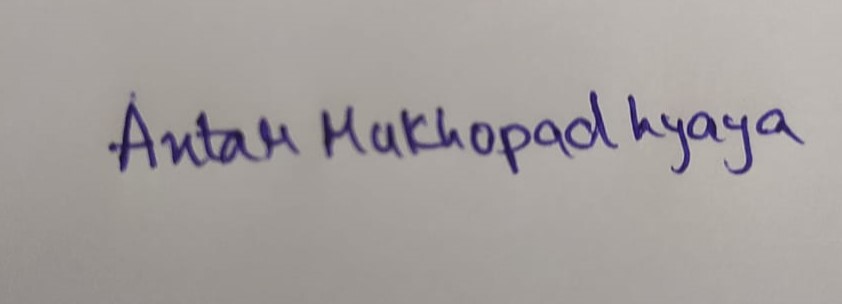 Antar Mukhopadhyaya